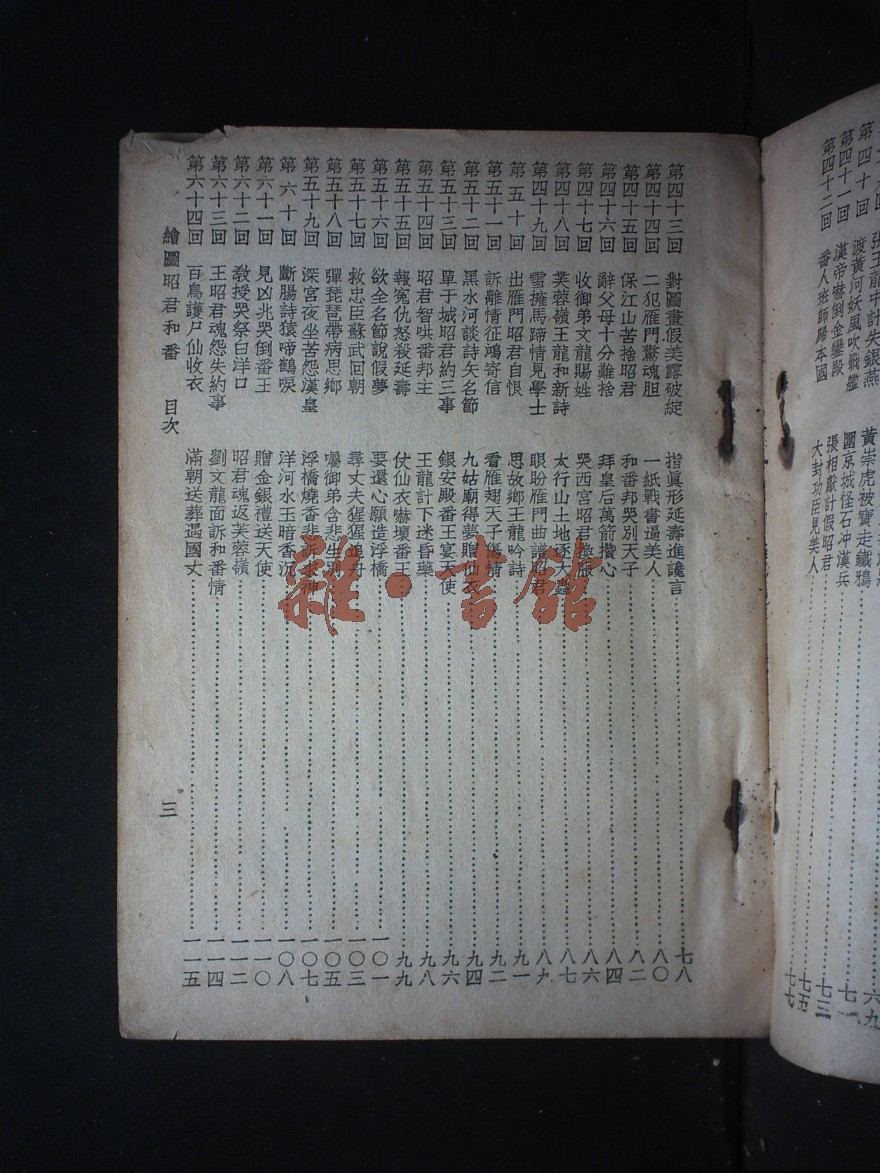 張玉龍中計失銀燕 黃崇虎被寶走鐵鴉 七一
第四十回 渡黃河妖風吹戰艦 國京城怪石冲漢兵 七三
第四十一回 漢帝嚇倒金鑾殿 張相獻計假昭君 七五
第四十二回 番人班師歸本國 大封功臣見美人 七七
第四十三回 對圖畫假美露破綻 指眞形延壽進讒言 七八
第四十四回 二犯雁門驚魂胆 一紙戰書逼美人 八〇
第四十五回 保江山苦捨昭君 和番邦哭別天子 八二
第四十六回 辭父母十分難捨 拜皇后萬箭攢心 八四
第四十七回 收御弟文龍賜姓 哭西宮昭君換服 八六
第四十八回 芙蓉嶺王龍和新詩 太行山土地逐大蟲 八七
第四十九回 雪擁馬蹄情見學士 眼盼雁門曲譜昭君 八九
第五十回 出雁門昭君自恨 思故鄉王龍吟詩 九一
第五十一回 訴離情征鴻寄信 看雁翅天子傷情 九二
第五十二回 黑水河談詩矢名節 九姑廟得夢贈仙衣 九四
第五十三回 單于城昭君約三事 銀安殿番王宴天使 九六
第五十四回 昭君智哄番邦主 王龍計下迷昏藥 九八
第五十五回 報寃仇怒殺延壽 仗仙衣嚇壞番王 九九
第五十六回 欲全名節說假夢 要還心願造浮橋 一〇一
第五十七回 救忠臣蘇武回朝 尋丈夫猩猩追舟 一〇三
第五十八回 彈琵琶帶病思鄉 囑御弟含悲生別 一〇五
第五十九回 深宮夜坐苦怨漢皇 浮橋燒香悲訴水神 一〇七
第六十回 斷腸詩猿啼鶴唳 洋河水玉暗香沉 一〇八
第六十一回 見凶兆哭倒番王 贈金銀禮送天使 一一〇
第六十二回 敎授哭祭白洋口 昭君魂返芙蓉嶺 一一二
第六十三回 王昭君魂怨失約事 劉文龍面訴和番情 一一四
第六十四回 百鳥護尸仙收衣 滿朝送葬遇國丈 一一五
繪圖昭君和番 目次 三
雜·書館